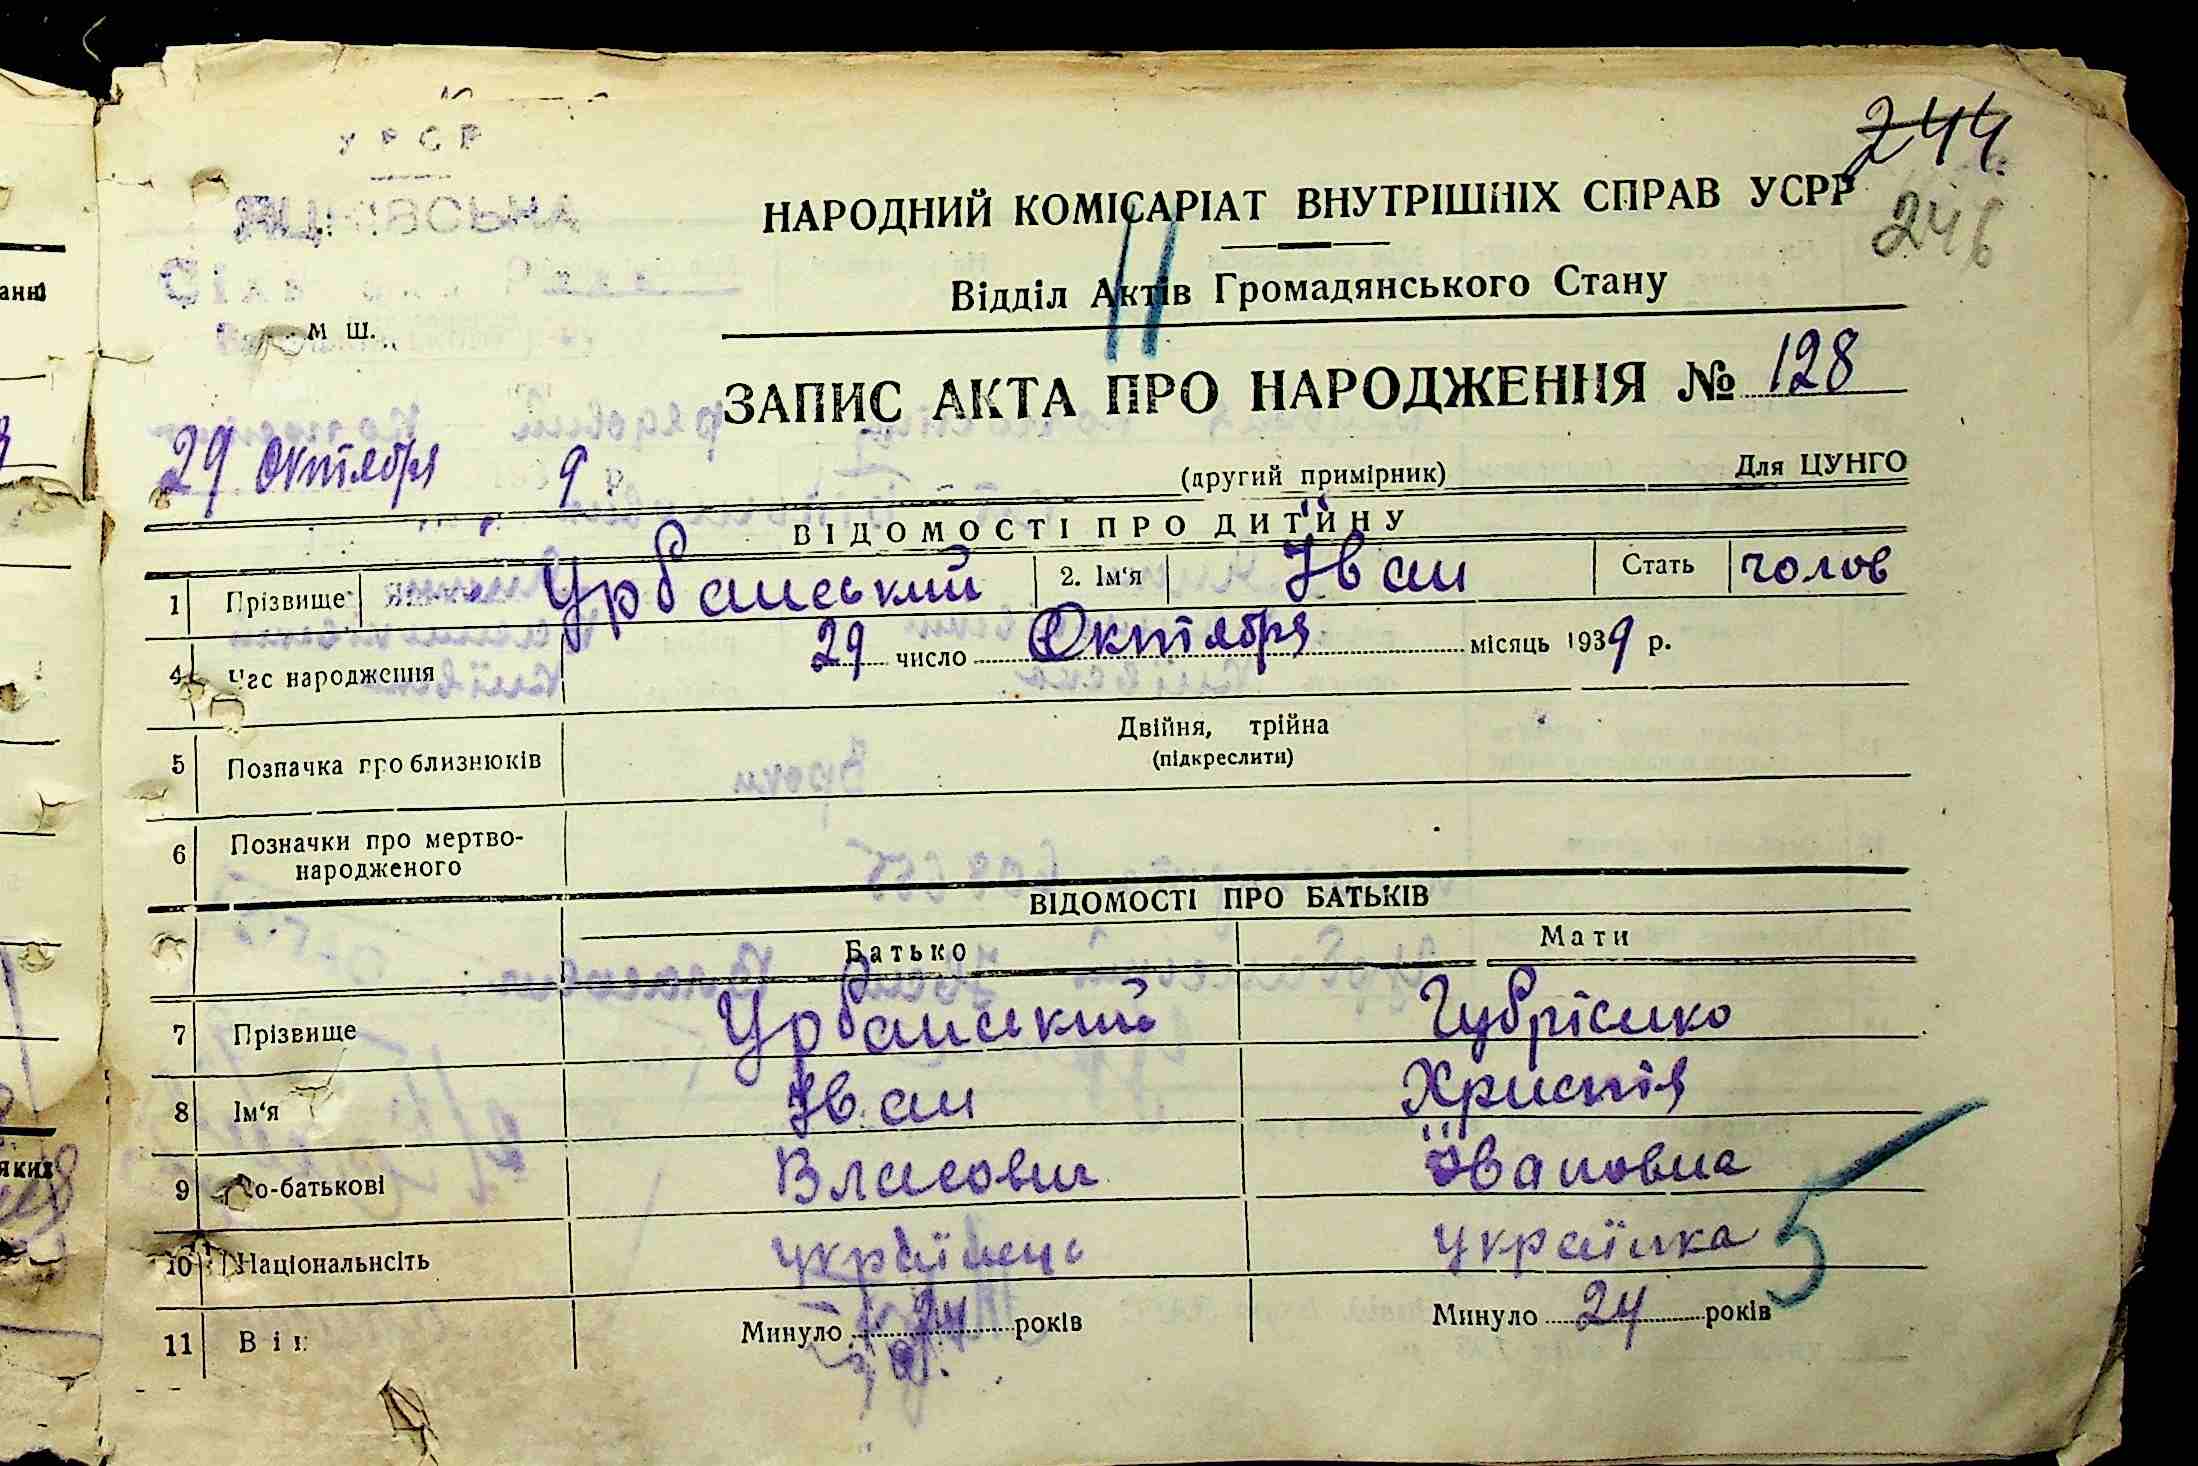 244
246
УРСР
НАРОДНИЙ КОМІСАРІАТ ВНУТРІШНІХ СПРАВ УСРР
11
Відділ Актів Громадянського Стану
м. ш.
ЗАПИС АКТА ПРО НАРОДЖЕННЯ № 128
29 Октября 9 р
(другий примірник) Для ЦУНГО
ВІДОМОСТІ ПРО ДИТИНУ
1 Прізвище Урбанський 2. Ім'я Іван Стать чолов
4 Час народження 29 число Октября місяць 1939 р.
5 Позначка про близнюків Двійня, трійна
(підкреслити)
6 Позначки про мертво-
народженого
ВІДОМОСТІ ПРО БАТЬКІВ
Батько Мати
7 Прізвище Урбанський
8 Ім'я Іван Христія
9 По-батькові Власович Івановна
10 Національнсіть українець українка
5
11 Вік Минуло 24 років Минуло 24 років